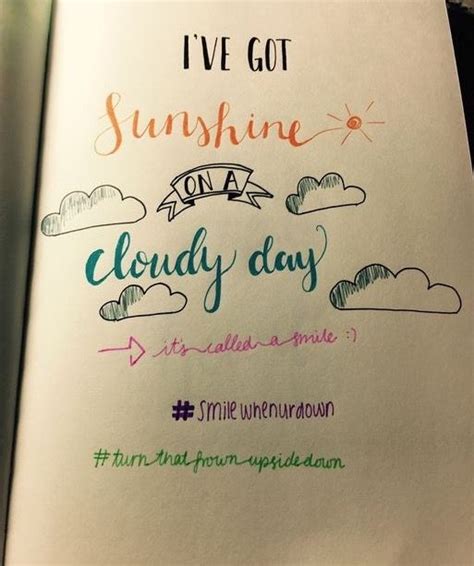 I'VE GOT
Sunshine
ON A
cloudy day
it's called a smile :)
#smilewhenurdown
#turnthatfrownupsidedown